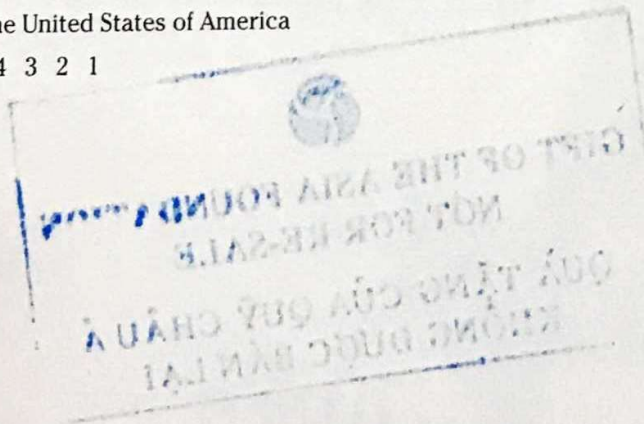 e United States of America
4 3 2 1
GIFT OF THE ASIA FOUNDATION
NOT FOR RE-SALE
QUÀ TẶNG CỦA QUỸ CHÂU Á
KHÔNG ĐƯỢC BÁN LẠI